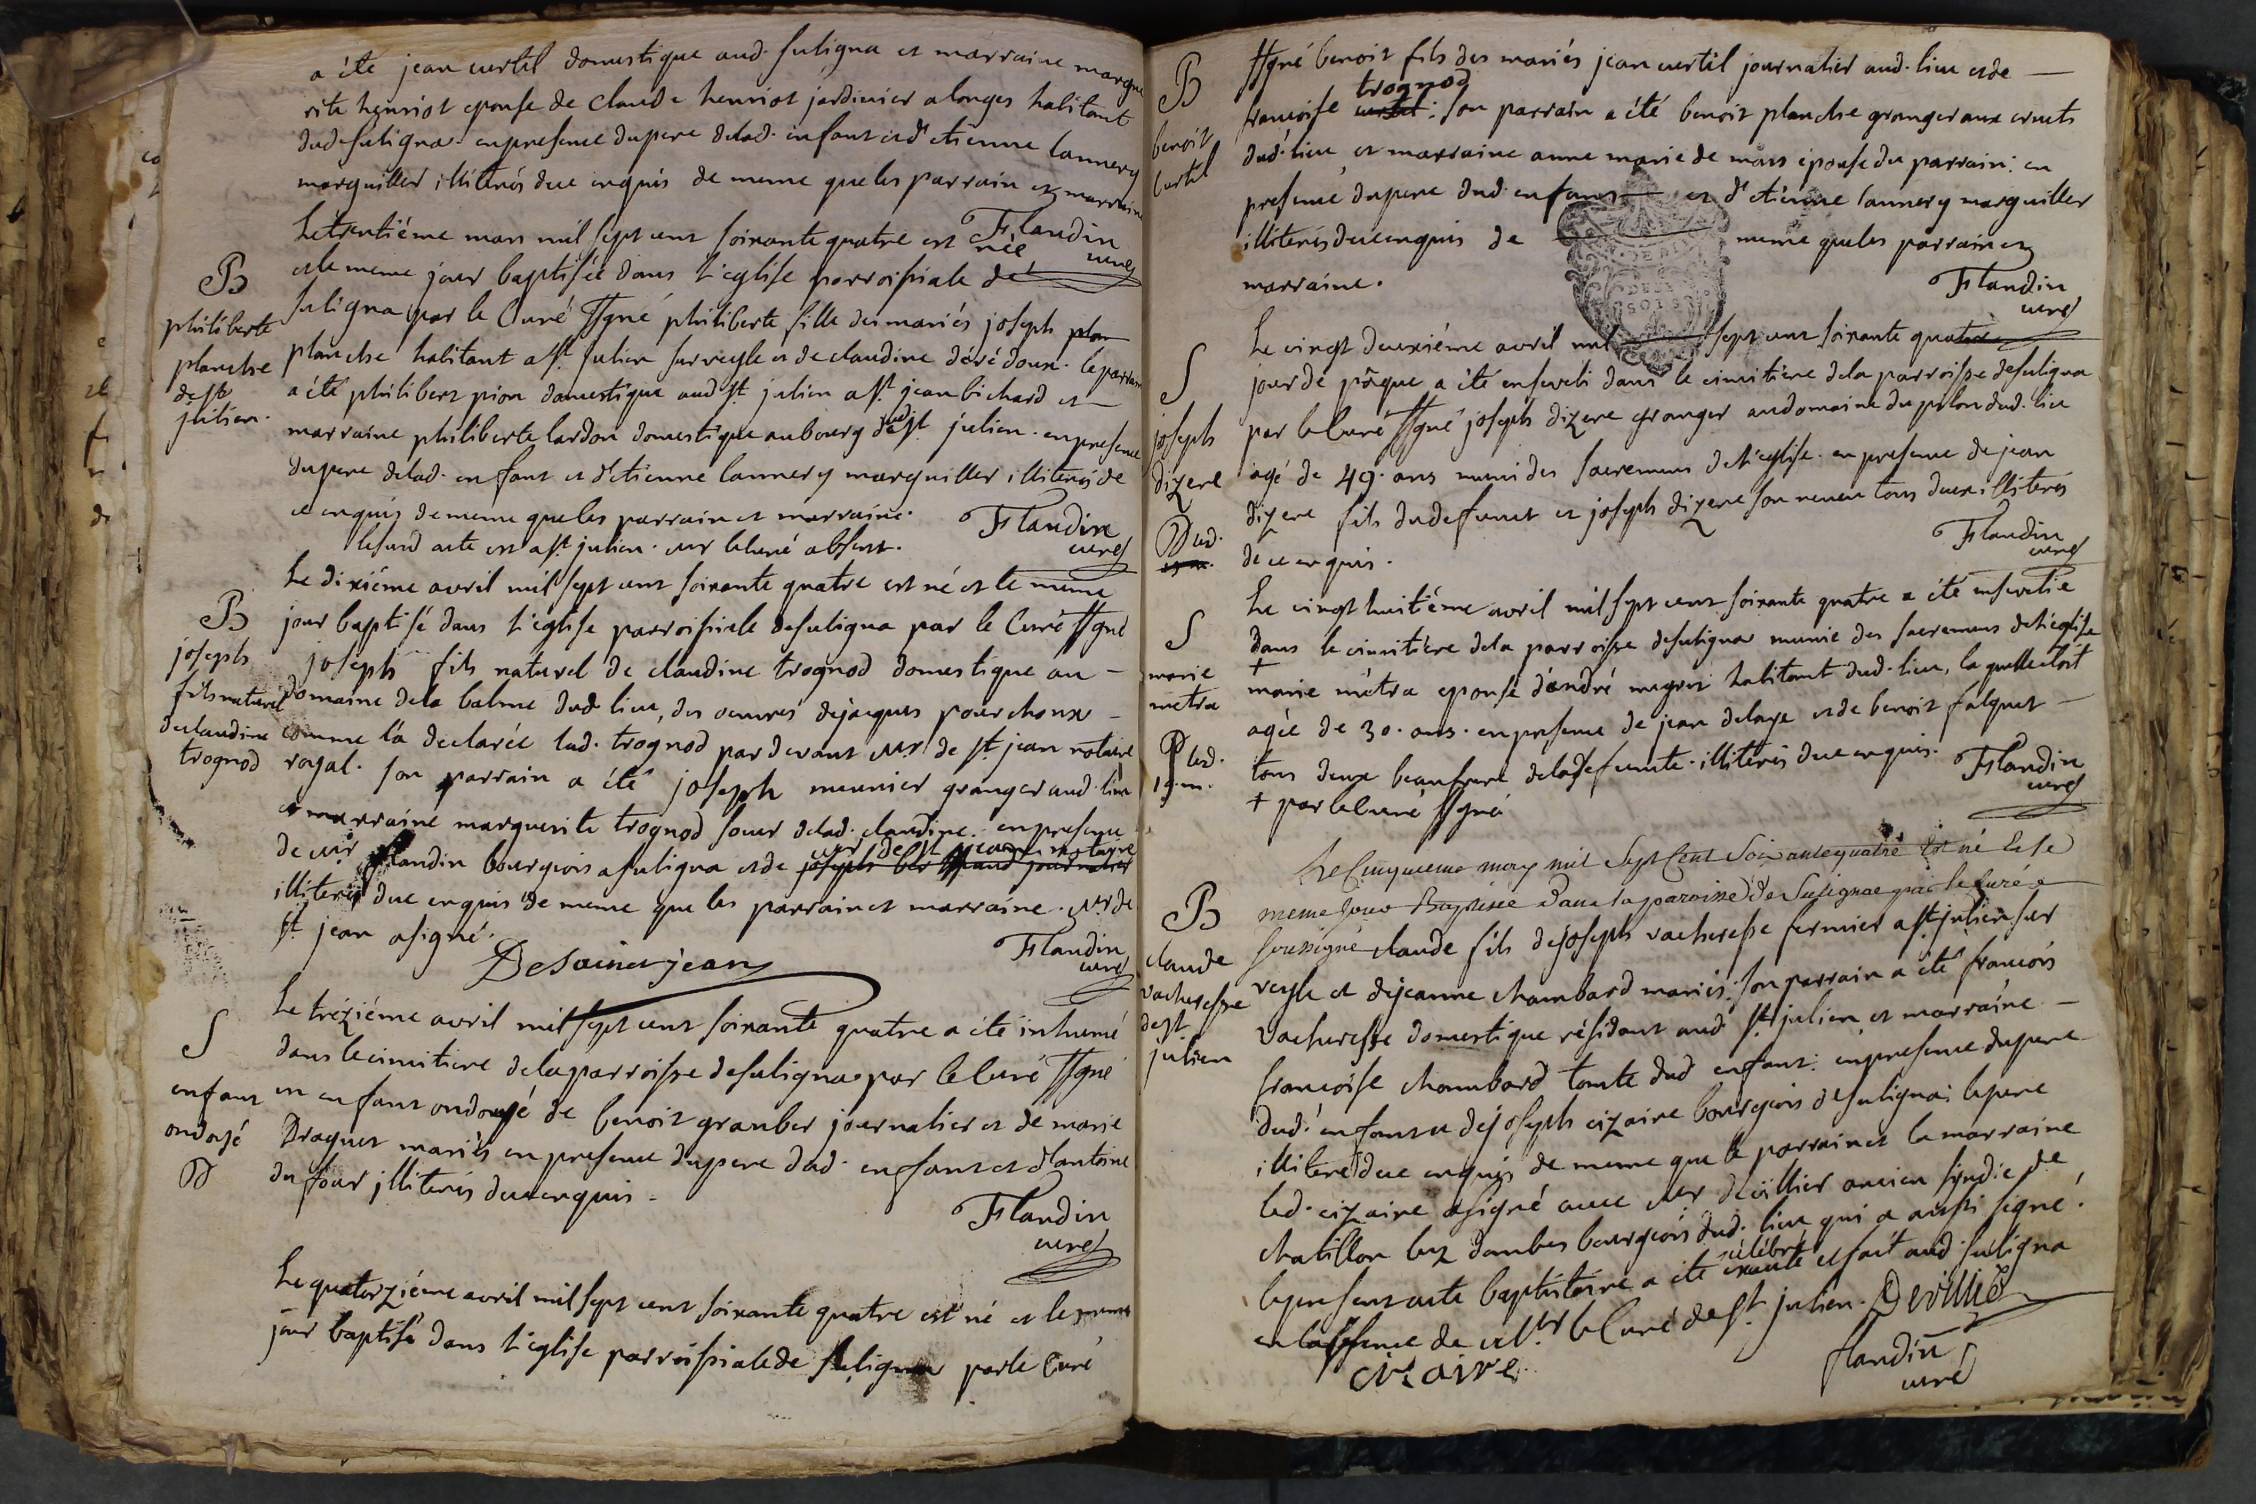 a été jean curtil domestique aud. suligna et marraine margue
rite henriot epouse de claude henriot jardinier a longes habitant
dud. suligna. en presence du pere delad. enfant et d'etienne lannery
marguiller illiterés de ce enquis de meme que les parrain et marraine
Flandin
curé
B
philiberte
planche
de st
julien.
Le trentiéme mars mil sept cent soixante quatre est née
et le meme jour baptisée dans l'eglise parroissiale de
suligna par le Curé ssgné philiberte fille des mariés joseph plan
planche habitant a st. julien sur veyle et de claudine déré doux. le parrain
a été philibert pion domestique aud st. julien a st. jean bichard et
marraine philiberte lardon domestique au bourg dudst. julien. en presence
du pere delad. enfant et d'etienne lannery marguiller illiterés de
ce enquis de meme que les parrain et marraine.
Flandin
curé
lesusd acte est a st. julien. mr le curé absent.
B
joseph
fils naturel
de claudine
trognod
Le dixiéme avril mil sept cent soixante quatre est né et le meme
jour baptisé dans l'eglise parroissiale de suligna par le Curé ssgné
joseph fils naturel de claudine trognod domestique au
domaine dela balme dud. lieu, des oeuvres de jacques pourchoux
comme l'a declarée lad. trognod par devant Mr. de st. jean notaire
royal. son parrain a été joseph meunier granger aud. lieu
et marraine marguerite trognod soeur delad. claudine. en presence
mr de st jean notayre
de mr flandin bourgeois a suligna et de joseph journalier
illiterés de ce enquis de meme que les parrain et marraine. Mr de
st. jean a signé.
Desaint jean
Flandin
curé
S
enfant
ondoyé
Le tréziéme avril mil sept cent soixante quatre a été inhumé
dans le cimitiere dela parroisse de suligna par le Curé ssgné
un enfant ondoyé de benoit granber journalier et de marie
Draguet mariés en presence du pere dud. enfant et d'antoine
du four illiterés de ce enquis.
Flandin
curé
Le quatorziéme avril mil sept cent soixante quatre est né et le meme
jour baptisé dans l'eglise parroissiale de suligna par le Curé
B
benoit
curtil
ssgné benoit fils des mariés jean curtil journalier aud. lieu et de
trognod
francoise curtil: son parrain a été benoit planche granger aux cruets
dud. lieu et marraine anne marie de mars épouse du parrain: en
presence du pere dud. enfant et d'etienne lannery marguiller
illiterés de ce enquis de meme que les parrain et
marraine.
Flandin
curé
S
joseph
dizere
Le vingt deuxiéme avril mil sept cent soixante quatre
jour de pâque a été enseveli dans le cimitiere dela parroisse de suligna
par le Curé ssgné joseph dizere granger au domaine du polon dud. lieu
agé de 49. ans muni des sacremens de l'eglise. en presence de jean
dizere fils du defunct et joseph dizere son neveu tous deux illiterés
de ce enquis.
Flandin
curé
S
marie
metra
19. m.
Le vingt huitiéme avril mil sept cent soixante quatre a été ensevelie
dans le cimitiére dela parroisse de suligna munie des sacremens de l'eglise
+
marie métra epouse d'andré megret habitant dud. lieu, la quelle étoit
agée de 30. ans. en presence de jean delaye et de benoit falquet
tous deux beaufrere delad. defuncte. illiterés de ce enquis.
+ par le Curé ssgné
Flandin
curé
B
claude
vacheresse
de st
julien
Le Cinquieme may mil Sept Cent Soixante quatre est né Et le
meme jour Baptisée Dans la paroisse de Sulignae par le Curé
soussigné claude fils de joseph vacheresse fermier a st. julien sur
veyle et de jeanne chambard mariés: son parrain a été francois
vacheresse domestique résidant aud st. julien et marraine
francoise chambard tante dud enfant: en presence du pere
dud. enfant et de joseph cizaire bourgeois de suligna: le pere
illiteré de ce enquis de meme que le parrain et la marraine
led. cizaire a signé avec Mr devillier ancien sindic de
chatillon lez dombes bourgeois dud. lieu qui a aussi signé.
célébré
le present acte baptistaire a été exauté et fait aud. suligna
en l'absence de Mr le Curé de st. julien. Devillié
cizaire
flandin
curé